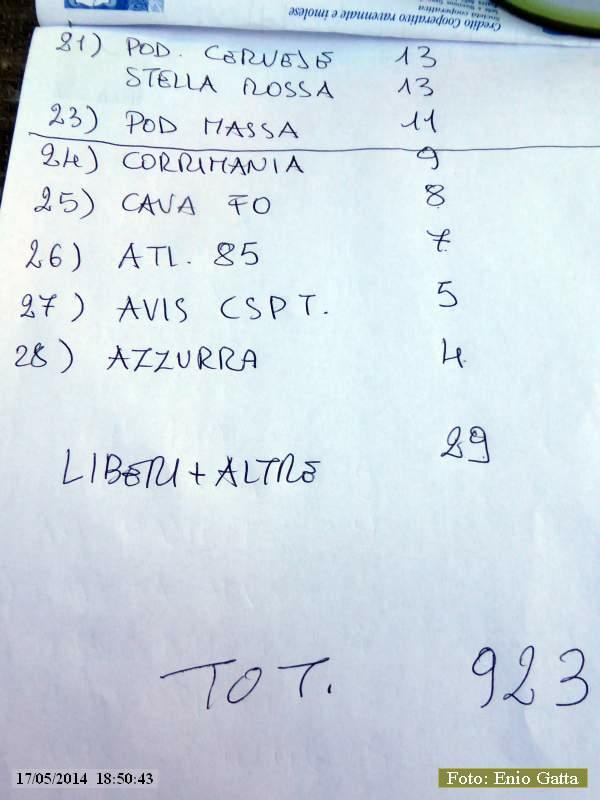 Credito Cooperativo ravennate e imolese
21) POD. CERVESE 13
STELLA ROSSA 13
23) POD MASSA 11
24) CORRIMANIA 9
25) CAVA FO 8
26) ATL. 85 7
27) AVIS CSPT. 5
28) AZZURRA 4
LIBERI + ALTRE 29
TOT. 923
17/05/2014 18:50:43
Foto: Enio Gatta